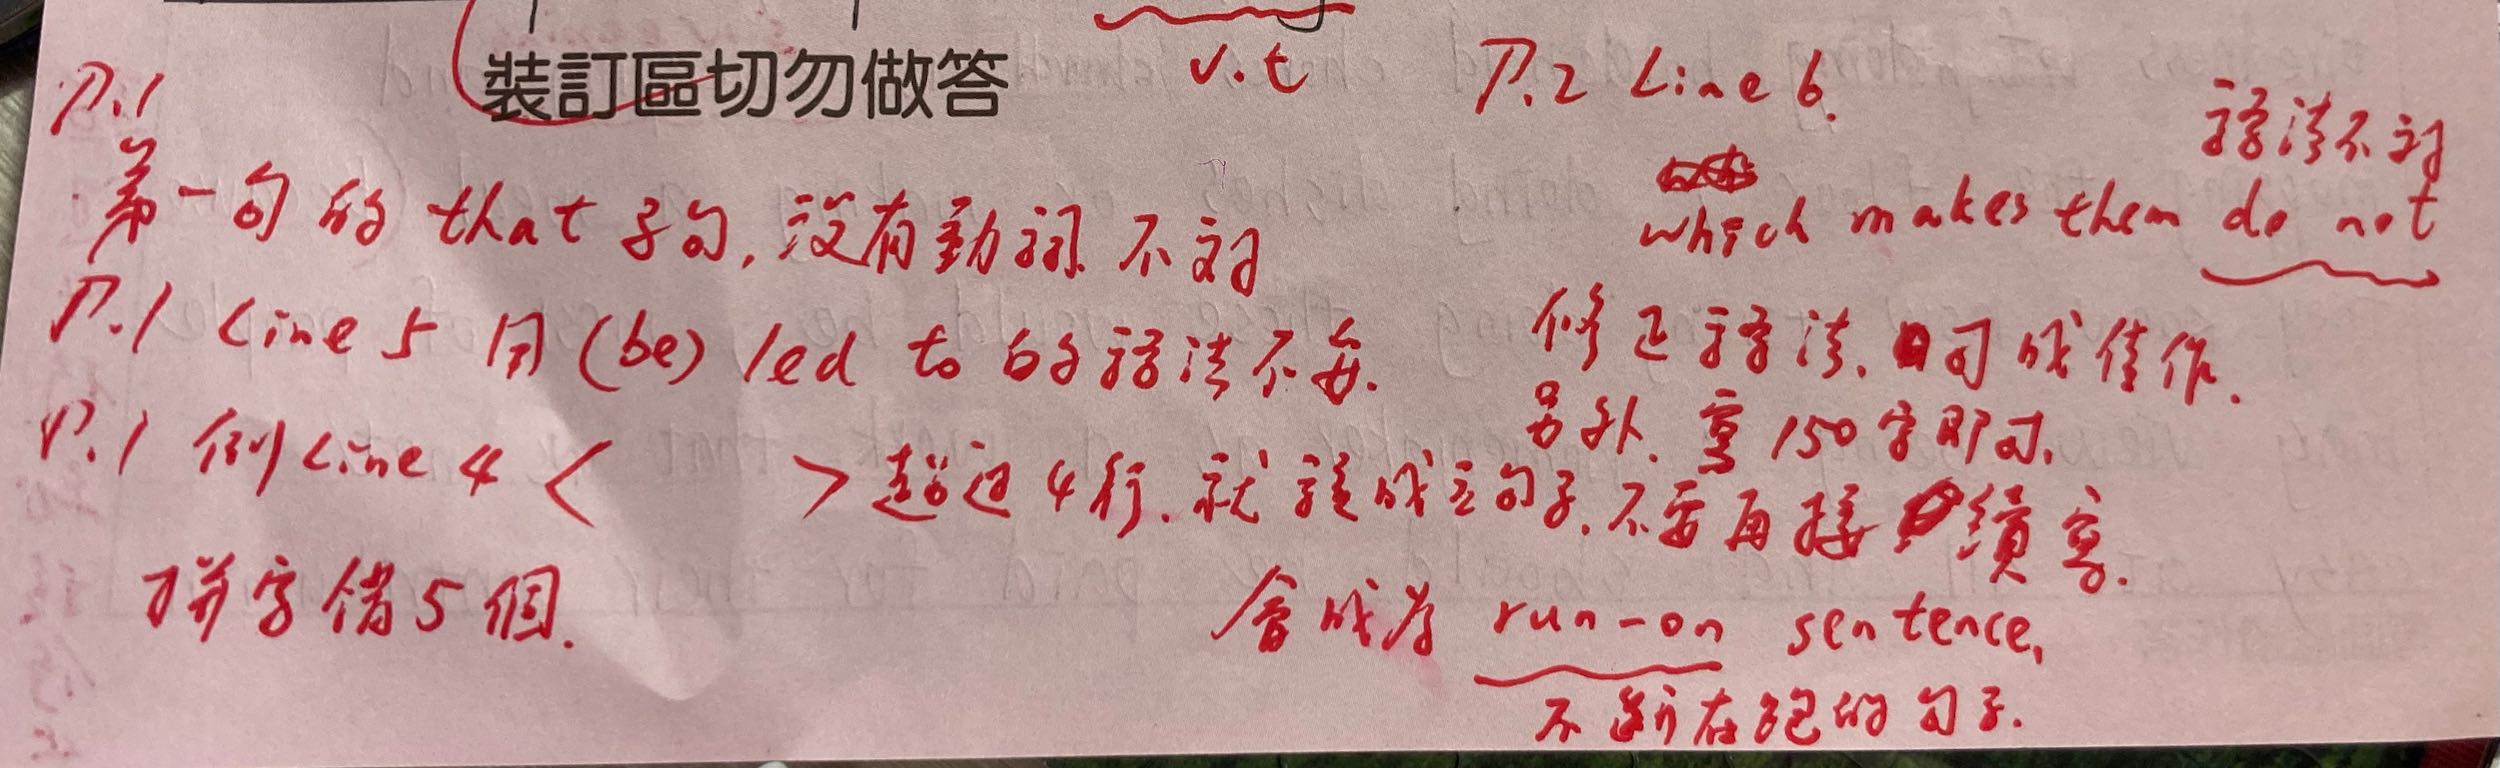 裝訂區切勿做答
v.t
P.1
第一句的 that 子句, 沒有動詞 不对
P.1 Line 5 用 (be) led to 的語法不妥.
P.1 例 Line 4 < > 超过 4行. 就該成立句子. 不要再接續寫.
拼字錯 5 個.
會成为 run-on sentence,
不斷在跑的句子.
P.2 Line 6.
語法不对
which makes them do not
修正語法. 可成佳作.
另外. 寫 150 字即可.